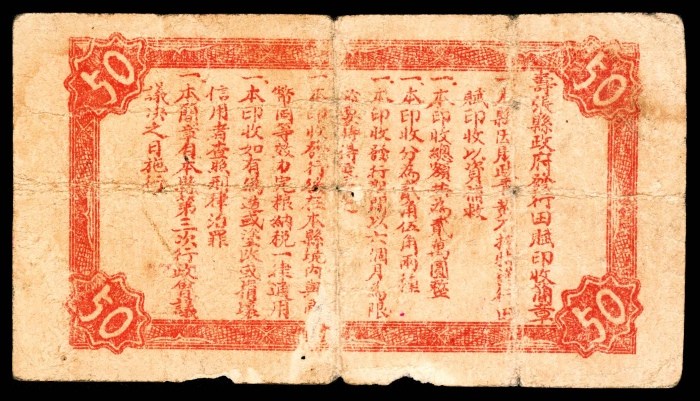 50
50
壽張縣政府發行田賦印收簡章
一、本縣因
賦印收以資
一、本印收總額共為貳萬圓整
一、本印收分為貳角伍角兩種
一、本印收發行期限以六個月為限
一、本印收發行後在本縣境內與
幣同等效力完糧納稅一律適用
一、本印收如有偽造或塗改或損壞
信用者查照刑律治罪
一、本簡章自本縣第三次行政會議
議決之日施行
50
50